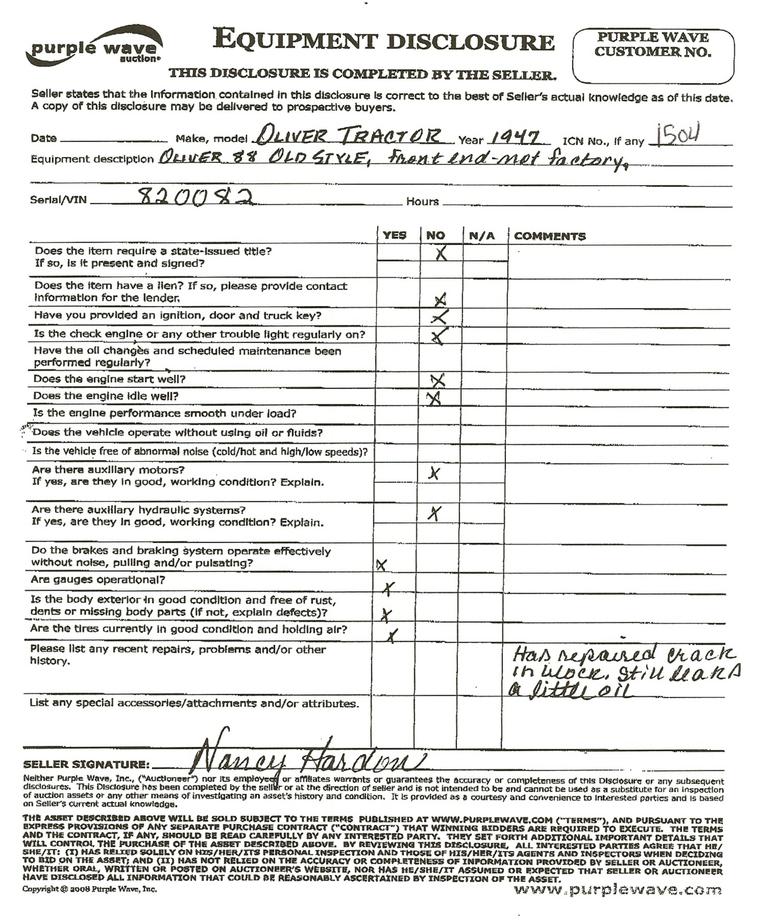 purple wave auction®
EQUIPMENT DISCLOSURE
PURPLE WAVE
CUSTOMER NO.
THIS DISCLOSURE IS COMPLETED BY THE SELLER.
Seller states that the information contained in this disclosure is correct to the best of Seller's actual knowledge as of this date.
A copy of this disclosure may be delivered to prospective buyers.
Date Make, model OLIVER TRACTOR Year 1947 ICN No., if any 1504
Equipment description OLIVER 88 OLD STYLE, front end-not factory,
Serial/VIN 820082 Hours
YES NO N/A COMMENTS
Does the item require a state-issued title? X
If so, is it present and signed?
Does the item have a lien? If so, please provide contact
information for the lender. X
Have you provided an ignition, door and truck key? X
Is the check engine or any other trouble light regularly on? X
Have the oil changes and scheduled maintenance been
performed regularly?
Does the engine start well? X
Does the engine idle well? X
Is the engine performance smooth under load?
Does the vehicle operate without using oil or fluids?
Is the vehicle free of abnormal noise (cold/hot and high/low speeds)?
Are there auxiliary motors? X
If yes, are they in good, working condition? Explain.
Are there auxiliary hydraulic systems? X
If yes, are they in good, working condition? Explain.
Do the brakes and braking system operate effectively
without noise, pulling and/or pulsating? X
Are gauges operational? X
Is the body exterior in good condition and free of rust,
dents or missing body parts (if not, explain defects)? X
Are the tires currently in good condition and holding air? X
Please list any recent repairs, problems and/or other
history.
Has repaired crack
in block. Still leaks
a little oil
List any special accessories/attachments and/or attributes.
SELLER SIGNATURE: Nancy Hardon
Neither Purple Wave, Inc., ("Auctioneer") nor its employees or affiliates warrants or guarantees the accuracy or completeness of this Disclosure or any subsequent
disclosures. This Disclosure has been completed by the seller or at the direction of seller and is not intended to be and cannot be used as a substitute for an inspection
of auction assets or any other means of investigating an asset's history and condition. It is provided as a courtesy and convenience to interested parties and is based
on Seller's current actual knowledge.
THE ASSET DESCRIBED ABOVE WILL BE SOLD SUBJECT TO THE TERMS PUBLISHED AT WWW.PURPLEWAVE.COM ("TERMS"), AND PURSUANT TO THE
EXPRESS PROVISIONS OF ANY SEPARATE PURCHASE CONTRACT ("CONTRACT") THAT WINNING BIDDERS ARE REQUIRED TO EXECUTE. THE TERMS
AND THE CONTRACT, IF ANY, SHOULD BE READ CAREFULLY BY ANY INTERESTED PARTY. THEY SET FORTH ADDITIONAL IMPORTANT DETAILS THAT
WILL CONTROL THE PURCHASE OF THE ASSET DESCRIBED ABOVE. BY REVIEWING THIS DISCLOSURE, ALL INTERESTED PARTIES AGREE HE/
SHE/IT: (I) HAS RELIED SOLELY ON HIS/HER/ITS PERSONAL INSPECTION AND THOSE OF HIS/HER/ITS AGENTS AND INSPECTORS WHEN DECIDING
TO BID ON THE ASSET; AND (II) HAS NOT RELIED ON THE ACCURACY OR COMPLETENESS OF INFORMATION PROVIDED BY SELLER OR AUCTIONEER,
WHETHER ORAL, WRITTEN OR POSTED ON AUCTIONEER'S WEBSITE, NOR HAS HE/SHE/IT ASSUMED OR EXPECTED THAT SELLER OR AUCTIONEER
HAVE DISCLOSED ALL INFORMATION THAT COULD BE REASONABLY ASCERTAINED BY INSPECTION OF THE ASSET.
Copyright © 2008 Purple Wave, Inc. www.purplewave.com